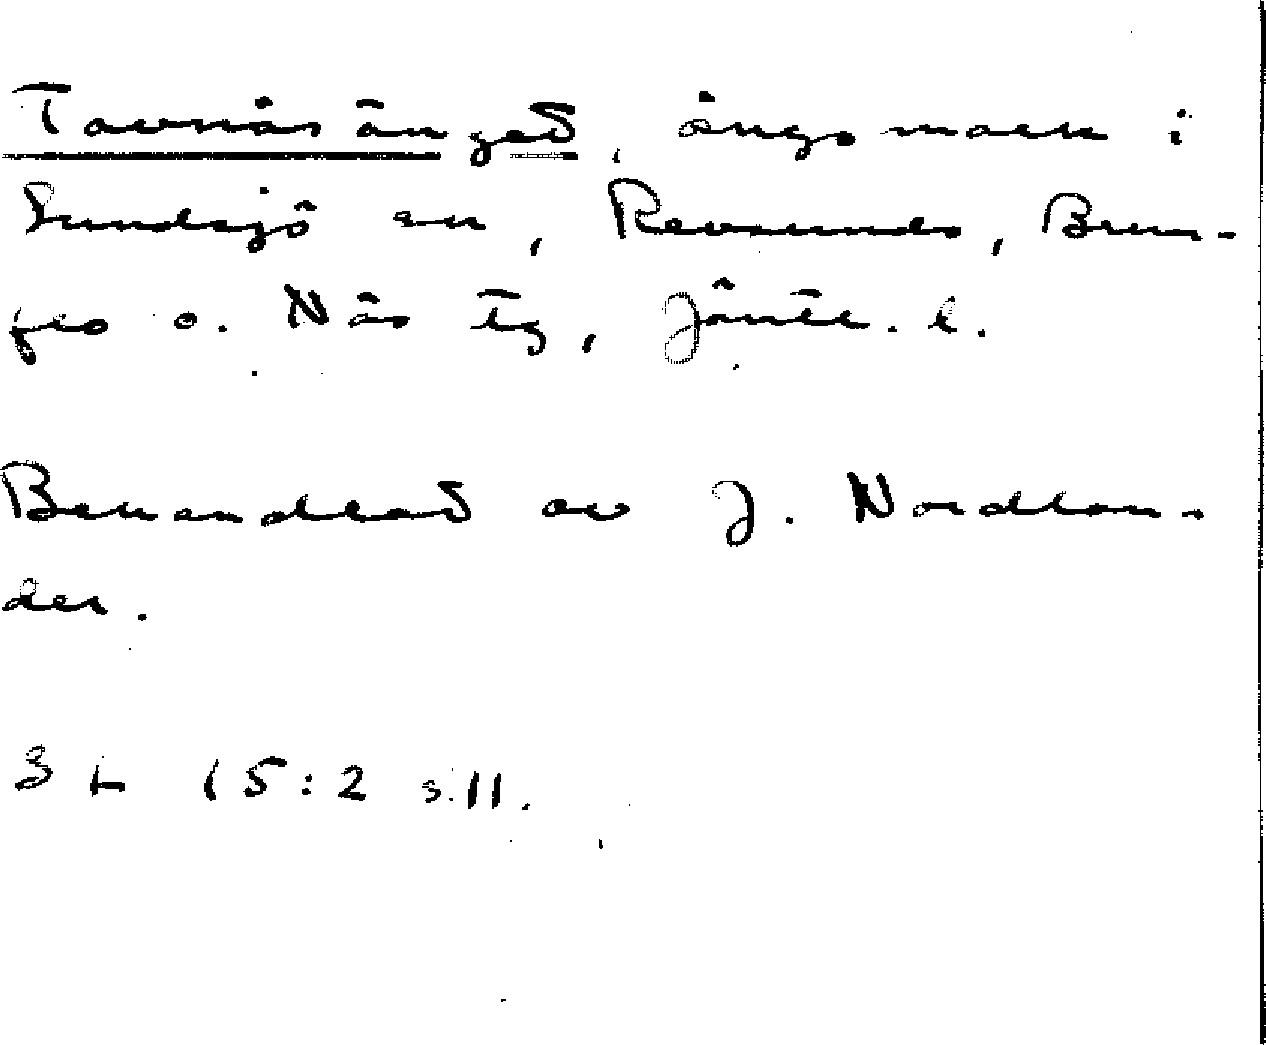 Tavnäsänget, ängsmark i
Sundsjö sn, Revsunds, Brun-
flo o. Näs tg, Jämtl. l.
Behandlat av J. Nordlan-
der.
SL 15:2 s. 11.